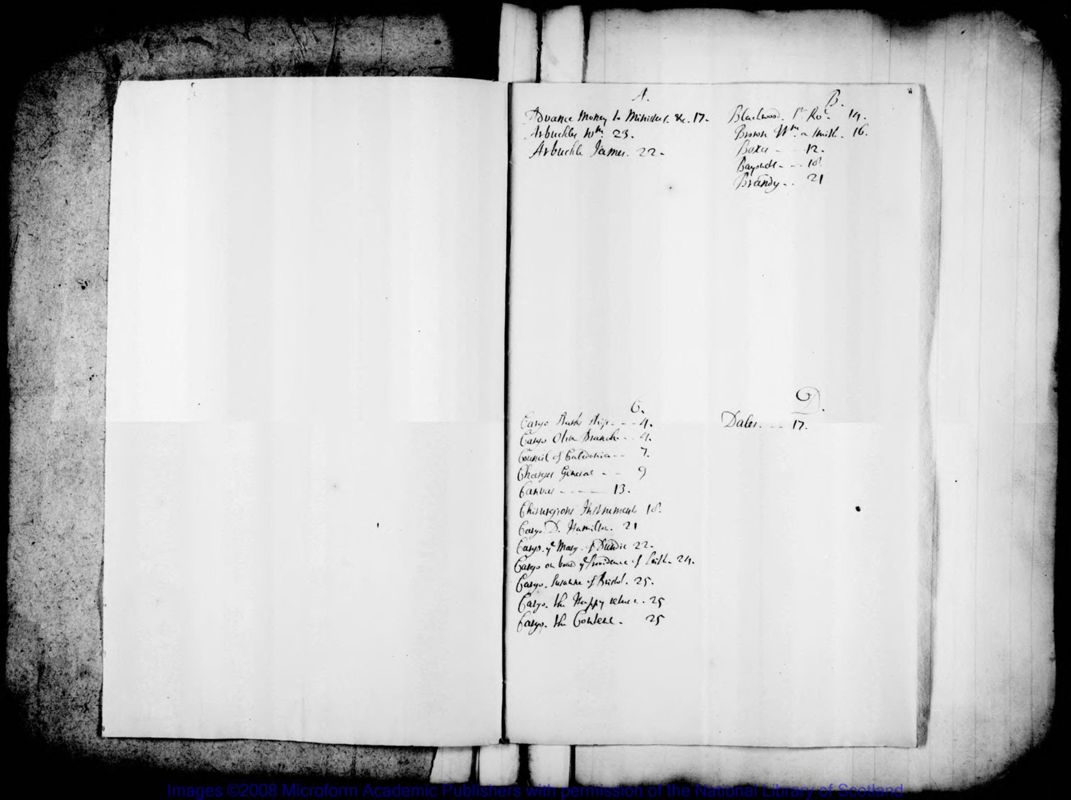 A.
Advance Money to Ministers &c. 17.
Arbuckle Wm. 23.
Arbuckle James. 22.
B.
Blackwood. Ro. 14.
Brown Wm. a Smith. 16.
Boxes - - 12.
18
Brandy - - 21
C.
Cargo Rush ship - - 4.
Cargo Olive Branch - - 4.
Councel of Caledonia - - 7.
Charges General - - 9
Canvas - - - - 13.
Chirurgions Instruments 18.
Cargo D. Hamilton. 21
Cargo. ye Mary of Dundie 22.
Cargo on board ye Providence of Leith. 24.
Cargo. Susanna of Bristol. 25.
Cargo. the Happy return. 25
Cargo. the Content. 25
D.
Dales. - - - 17.
Images ©2008 Microform Academic Publishers with permission of the National Library of Scotland